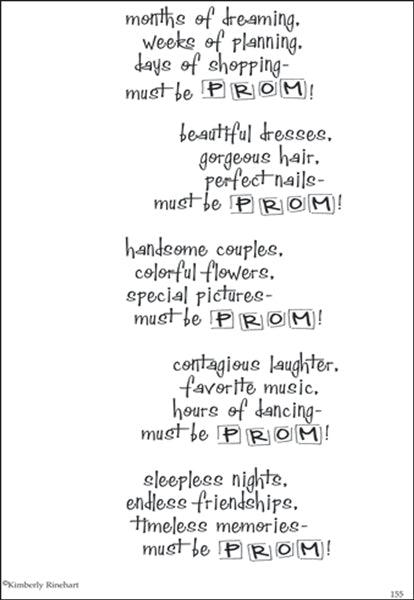 months of dreaming,
weeks of planning,
days of shopping-
must be PROM!
beautiful dresses,
gorgeous hair,
perfect nails-
must be PROM!
handsome couples,
colorful flowers,
special pictures-
must be PROM!
contagious laughter,
favorite music,
hours of dancing-
must be PROM!
sleepless nights,
endless friendships,
timeless memories-
must be PROM!
©Kimberly Rinehart
155